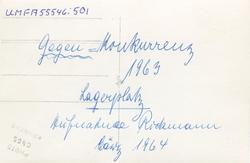 UMFA55546:501
Gegen = Konkurrenz
1963
Lagerplatz
Aufnahme Rickmann
März 1964